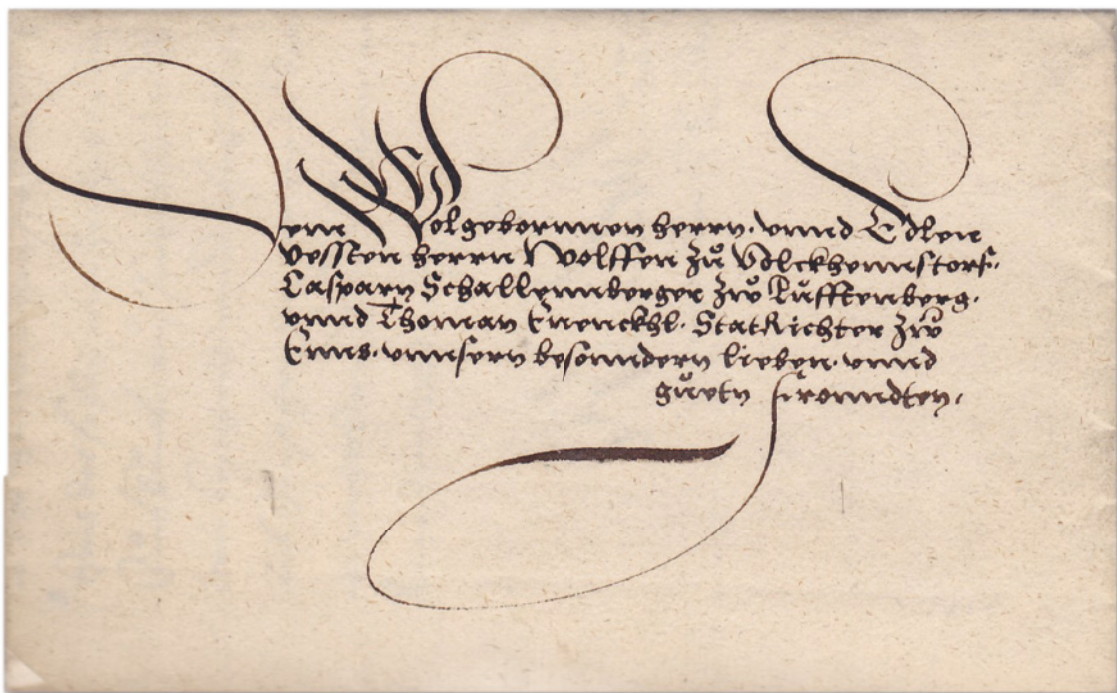 Dem Wolgebornnen herrn. vnnd Edlen
vessten herrn Wolffen zů Volckhennstorf.
Casparn Schallennberger zů Lůfftenberg.
vnnd Thoman Enenckhl. StatRichter zů
Enns. vnnsern besonndern lieben. vnnd
gůetn freundten.